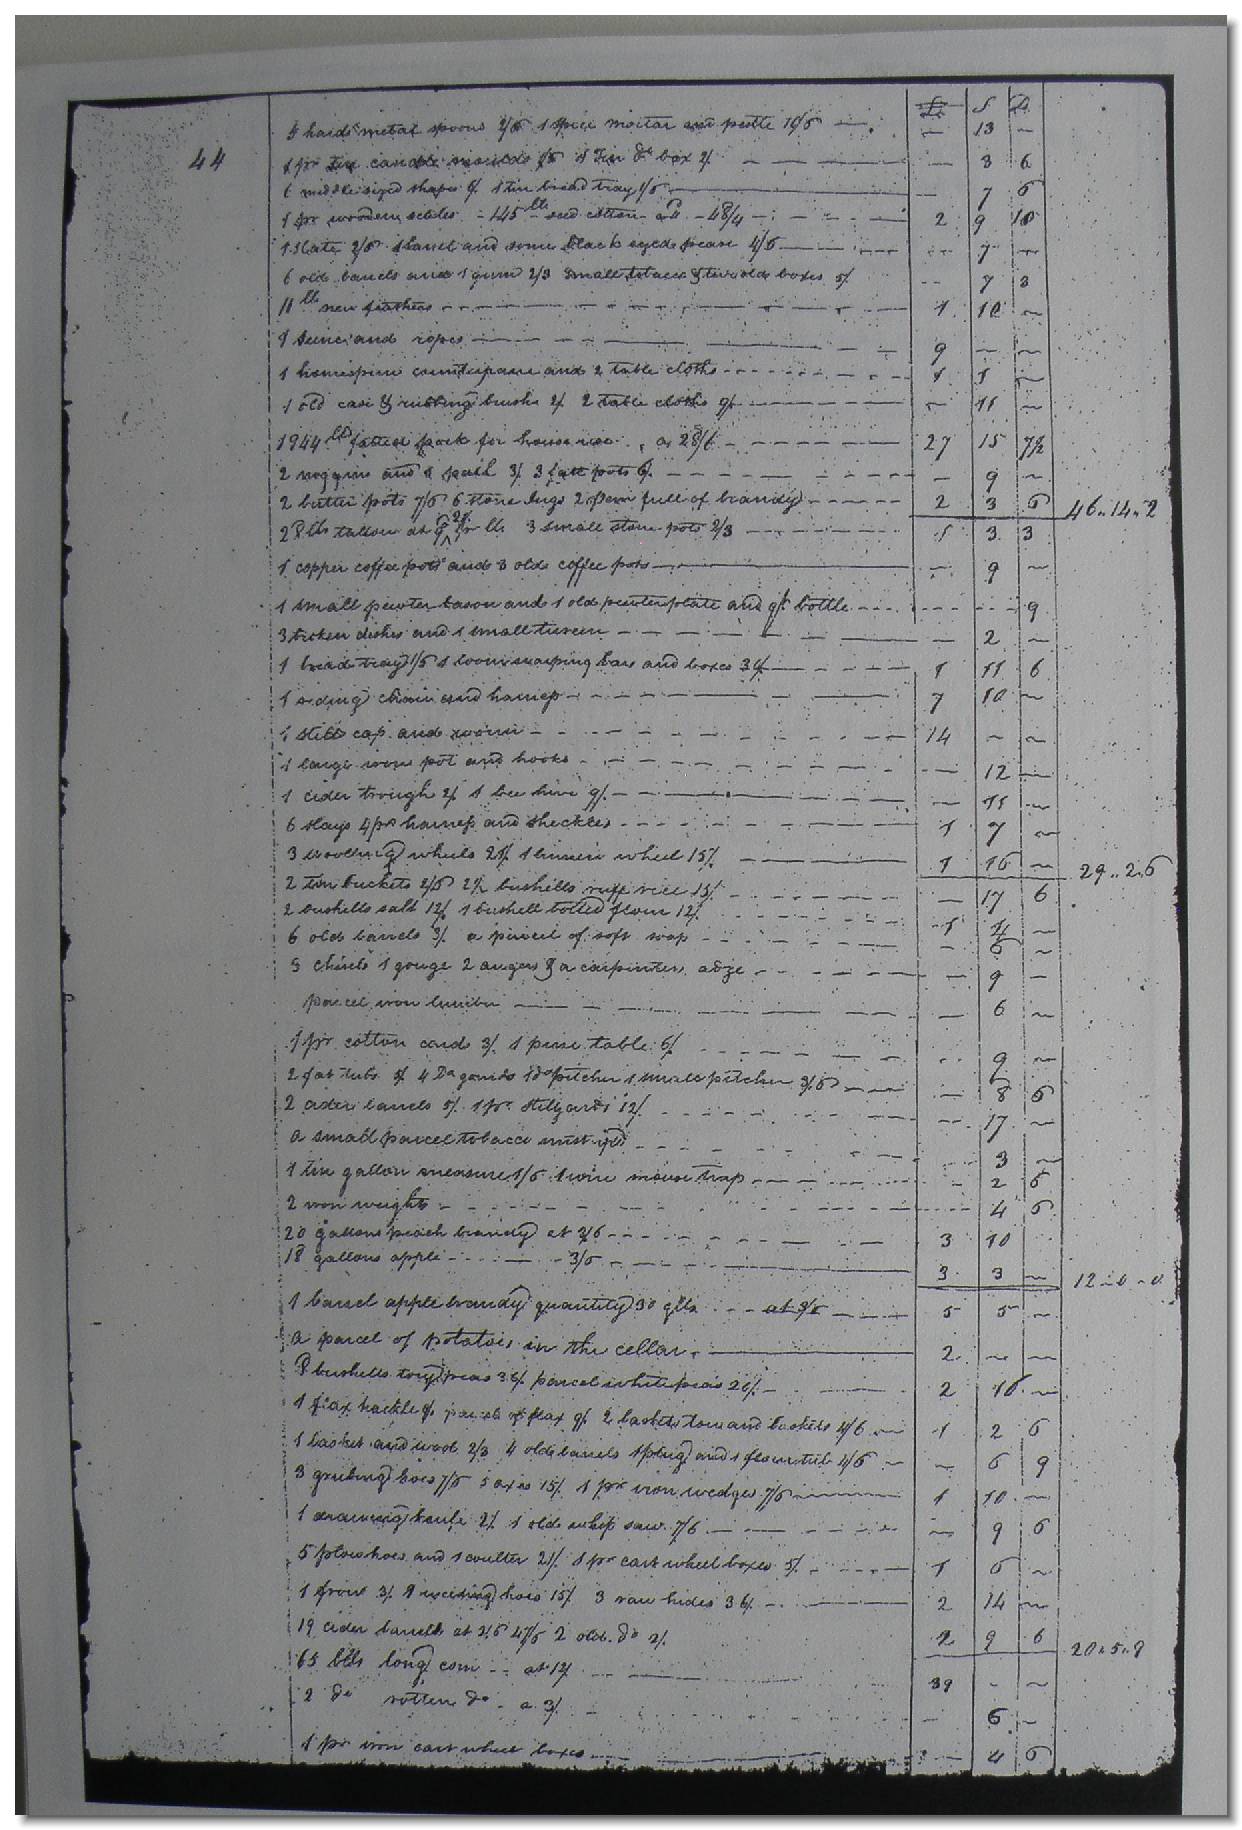 £ S D
5 hard metal spoons 2/6 1 spice mortar and pestle 10/6 — 13 —
44
1 pr tin candle moulds 1/6 1 Tin do box 2/ — 3 6
6 middle sized shapes 6/ 1 tin bread tray 1/6 — 7 6
1 pr wooden scales 145 lb seed cotton 48/4 2 9 10
1 Slate 2/6 1 barrel and some black eyed pease 4/6 — 7 —
6 old barrels and 1 gum 2/3 small tobacco & two old boxes 5/ — 7 3
11 lb new feathers 1 10 —
1 Seine and ropes 9 — —
1 homespun counterpane and 2 table cloths 1 1 —
1 old case & rubbing brushe 2/ 2 table cloths 9/ — 11 —
1944 lbs fatted pork for house use a 28/6 27 15 7½
2 noggins and 1 pail 3/ 3 fatt pots 6/ — 9 —
2 butter pots 7/6 6 stone Jugs 2 full of brandy 2 3 6 46..14..2
28 lbs tallow at pr lb 3 small stone pots 2/3 1 3 3
1 copper coffee pott and 3 old coffee pots — 9 —
1 small pewter bason and 1 old pewter plate and qt bottle 9
3 broken dishes and 1 small tureen — 2 —
1 bread tray 1/6 1 loom warping bars and boxes 30/ 1 11 6
1 riding chair and harness 7 10 —
1 still cap and worm 14 — —
1 large iron pot and hooks — 12 —
1 cider trough 2/ 1 bee hive 9/ — 11 —
6 slays 4 prs harness and sheckles 1 7 —
3 woolling wheels 21/ 1 linnen wheel 15/ 1 16 — 29..2.6
2 tin buckets 2/6 2½ bushells ruff rice 15/ — 17 6
2 bushells salt 12/ 1 bushell bolted flour 12/ 1 4 —
6 old barrels 3/ a parcel of soft soap 6 —
3 chisels 1 gouge 2 augers & a carpenters adze — 9 —
parcel iron lumber — 6 —
1 pr cotton cards 3/ 1 pine table 6/ — 9 —
2 fat tubs 5/ 4 Do gourds 1 do pitcher 1 small pitcher 3/6 — 8 6
2 cider barrels 5/ 1 pr stilyards 12/ — 17 —
a small parcel tobacco 3 —
1 tin gallon measure 1/6 1 wire mouse trap — 2 6
2 iron weights 4 6
20 gallons peach brandy at 3/6 3 10
18 gallons apple 3/6 3 3 — 12 - 0 - 0
1 barrel apple brandy quantity 30 glls at 3/6 5 5 —
a parcel of potatoes in the cellar 2 — —
8 bushells tory peas 30/ parcel white peas 20/ 2 10 —
1 flax hackle 9/ parcel of flax 9/ 2 baskets tow and baskets 4/6 1 2 6
1 basket and wool 2/3 4 old barrels 1 plug and 1 flour tub 4/6 — 6 9
3 grubing hoes 7/6 5 axes 15/ 1 pr iron wedges 7/6 1 10 —
1 drawing knife 2/ 1 old whip saw 7/6 — 9 6
5 plow hoes and 1 coulter 21/ 1 pr cart wheel boxes 5/ 1 6 —
1 frow 3/ 8 weeding hoes 15/ 3 raw hides 36/ 2 14 —
19 cider barrells at 2/6 47/6 2 old do 2/ 2 9 6 20..5..9
65 bbls long corn at 12/ 39 - —
2 do rotten do a 3/ — 6 —
1 pr iron cart wheel boxes — 4 6